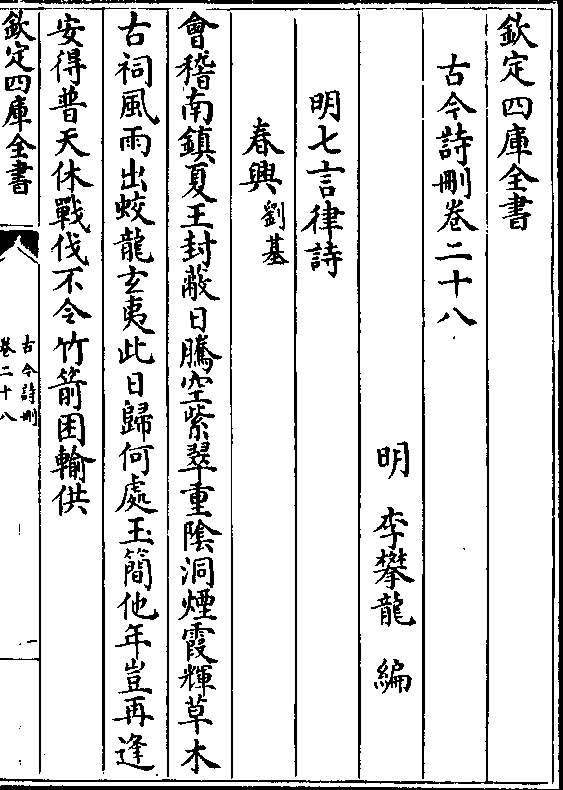 欽定四庫全書
古今詩刪卷二十八
明 李攀龍 編
明七言律詩
春興 劉基
會稽南鎮夏王封蔽日騰空紫翠重陰洞煙霞輝草木
古祠風雨出蛟龍玄夷此日歸何處玉簡他年豈再逢
安得普天休戰伐不令竹箭困輸供
欽定四庫全書
古今詩刪
卷二十八
一